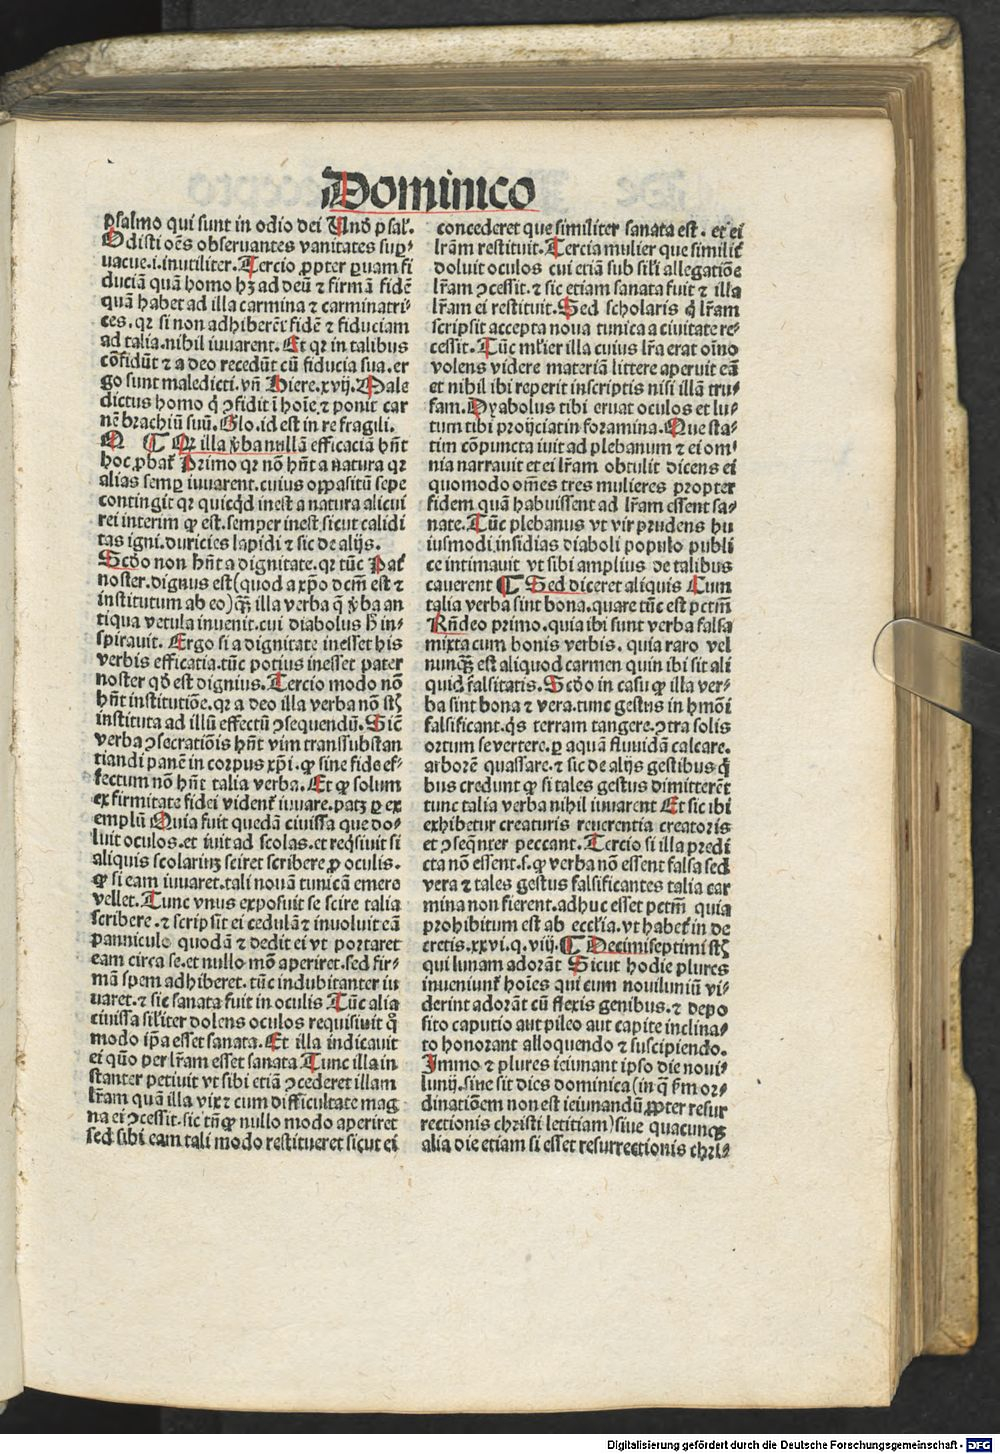 Dominico
psalmo qui sunt in odio dei Un̄d psal'.
Odisti oēs obseruantes vanitates sup̱⸗
uacue.i.inutiliter.Tercio ꝓpter prauam fi
duciā quā homo hꝫ ad deū ⁊ firmā fidē
quā habet ad illa carmina ⁊ carminatri⸗
ces.qꝛ si non adhiberēt fidē ⁊ fiduciam
ad talia.nihil iuuarent.Et qꝛ in talibus
cōfidūt ⁊ a deo recedūt cū fiducia sua.er
go sunt maledicti.vn̄ Hiere.xvij.Male
dictus homo q̄ ꝯfidit ī hoīe.⁊ ponit car
nē brachiū suū.Glo.id est in re fragili.
N ¶ Qꝛ illa ꝟba nullā efficaciā hn̄t
hoc.ꝓbat' Primo qꝛ nō hn̄t a natura qꝛ
alias semꝑ iuuarent.cuius oppositū sepe
contingit qꝛ quicqd inest a natura alicui
rei interim ꝙ est.semper inest sicut calidi
tas igni.duricies lapidi ⁊ sic de alijs.
Scd̄o non hn̄t a dignitate.qꝛ tūc Pat'
noster.dignus est(quod a xp̄o dc̄m est ⁊
institutum ab eo)qꝫ illa verba q̄ ꝟba an
tiqua vetula inuenit.cui diabolus h̄ in⸗
spirauit. Ergo si a dignitate inesset his
verbis efficatia.tūc potius inesset pater
noster qd̄ est dignius.Tercio modo nō
hn̄t institutiōe.qꝛ a deo illa verba nō st̄
instituta ad illū effectū ꝯsequendū.Sic̄
verba ꝯsecratiōis hn̄t vim transsubstan
tiandi panē in corpus xp̄i.ꝙ sine fide ef⸗
fectum nō hn̄t talia verba.Et ꝙ solum
ex firmitate fidei vident' iuuare.patꝫ ꝑ ex
emplū Quia fuit quedā ciuissa que do⸗
luit oculos.et iuit ad scolas.et reqsiuit si
aliquis scolariuꝫ sciret scribere ꝓ oculis.
ꝙ si eam iuuaret.tali nouā tunicā emere
vellet.Tunc vnus exposuit se scire talia
scribere.⁊ scripsit ei cedulā ⁊ inuoluit eā
panniculo quodā ⁊ dedit ei vt portaret
eam circa se.et nullo mō aperiret.sed fir⸗
mā spem adhiberet.tūc indubitanter iu
uaret.⁊ sic sanata fuit in oculis Tūc alia
ciuissa sil'iter dolens oculos requisiuit q̊
modo ip̄a esset sanata.Et illa indicauit
ei quō per lr̄am esset sanata Tunc illa in
stanter petiuit vt sibi etiā ꝯcederet illam
lr̄am quā illa vix ⁊ cum difficultate mag
na ei ꝯcessit.sic tn̄ ꝙ nullo modo aperiret
sed sibi eam tali modo restitueret sicut ei
concederet que similiter sanata est. et ei
lr̄am restituit.Tercia mulier que similit'
doluit oculos cui etiā sub sil'i allegatiōe
lr̄am ꝯcessit.⁊ sic etiam sanata fuit ⁊ illa
lr̄am ei restituit.Sed scholaris q̄ lr̄am
scripsit accepta noua tunica a ciuitate re⸗
cessit.Tūc ml'ier illa cuius lr̄a erat oīno
volens videre materiā littere aperuit eā
et nihil ibi reperit inscriptis nisi illā tru⸗
fam.Dyabolus tibi eruat oculos et lu⸗
tum tibi proijciat in foramina.Que sta⸗
tim cōpuncta iuit ad plebanum ⁊ ei om⸗
nia narrauit et ei lr̄am obtulit dicens ei
quomodo om̄es tres mulieres propter
fidem quā habuissent ad lr̄am essent sa⸗
nate.Tūc plebanus vt vir prudens hu
iusmodi insidias diaboli populo publi
ce intimauit vt sibi amplius de talibus
cauerent ¶ Sed diceret aliquis Cum
talia verba sint bona.quare tūc est pctm̄
Rn̄deo primo.quia ibi sunt verba falsa
mixta cum bonis verbis. quia raro vel
nunqꝫ est aliquod carmen quin ibi sit ali
quid falsitatis.Scd̄o in casu ꝙ illa ver⸗
ba sint bona ⁊ vera.tunc gestus in hm̄oi
falsificant.q̄s terram tangere.ꝯtra solis
ortum se vertere.ꝑ aquā fluuidā calcare.
arborē quassare.⁊ sic de alijs gestibus q̄
bus credunt ꝙ si tales gestus dimitterēt
tunc talia verba nihil iuuarent Et sic ibi
exhibetur creaturis reuerentia creatoris
et ꝯseqn̄ter peccant.Tercio si illa predi
cta nō essent.s.ꝙ verba nō essent falsa sed
vera ⁊ tales gestus falsificantes talia car
mina non fierent.adhuc esset pctm̄ quia
prohibitum est ab eccl'ia.vt habet' in de
cretis.xxvi.q.viij.¶ Decimiseptimi st̄
qui lunam adorāt Sicut hodie plures
inueniunt' hoīes qui cum nouiluniū vi⸗
derint adorāt cū flexis genibus.⁊ depo
sito caputio aut pileo aut capite inclina⸗
to honorant alloquendo ⁊ suscipiendo.
Immo ⁊ plures ieiunant ipso die noui⸗
lunij.siue sit dies dominica(in q̄ ẜm or⸗
dinatiōem non est ieiunandū ꝓpter resur
rectionis christi letitiam)siue quacunqꝫ
alia die etiam si esset resurrectionis chri⸗
Digitalisierung gefördert durch die Deutsche Forschungsgemeinschaft - DFG